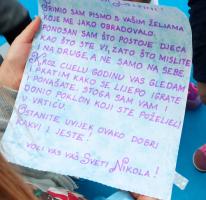 PRIMIO SAM PISMO S VAŠIM ŽELJAMA
KOJE ME JAKO OBRADOVALO.
PONOSAN SAM ŠTO POSTOJE DJECA
KAO ŠTO STE VI, ZATO ŠTO MISLITE
I NA DRUGE, A NE SAMO NA SEBE.
KROZ CIJELU GODINU VAS GLEDAM
I PRATIM KAKO SE LIJEPO IGRATE
I PONAŠATE. STOGA SAM VAM
DONIO POKLON KOJI STE POŽELJELI
U VRTIĆU.
OSTANITE UVIJEK OVAKO DOBRI
KAKVI I JESTE!
VOLI VAS VAŠ SVETI NIKOLA!